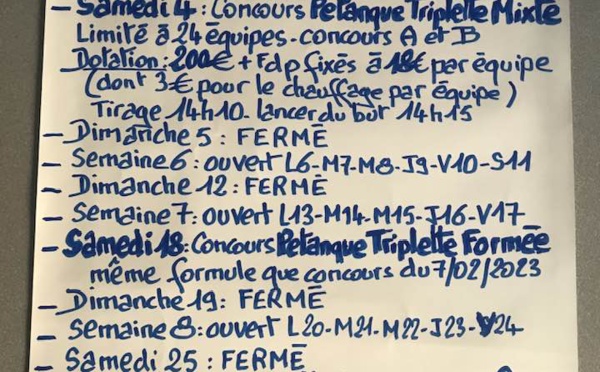 - Samedi 4: Concours Petanque Triplette Mixte
Limité à 24 équipes - concours A et B
Dotation: 200€ + Fdp fixés à 18€ par équipe
(dont 3€ pour le chauffage par équipe)
Tirage 14h10 - lancer du but 14h15
- Dimanche 5: FERMÉ
- Semaine 6: ouvert L6-M7-M8-J9-V10-S11
- Dimanche 12: FERMÉ
- Semaine 7: ouvert L13-M14-M15-J16-V17
- Samedi 18: Concours Petanque Triplette Formée
même formule que concours du 7/02/2023
- Dimanche 19: FERMÉ
- Semaine 8: ouvert L20-M21-M22-J23-V24
- Samedi 25: FERMÉ